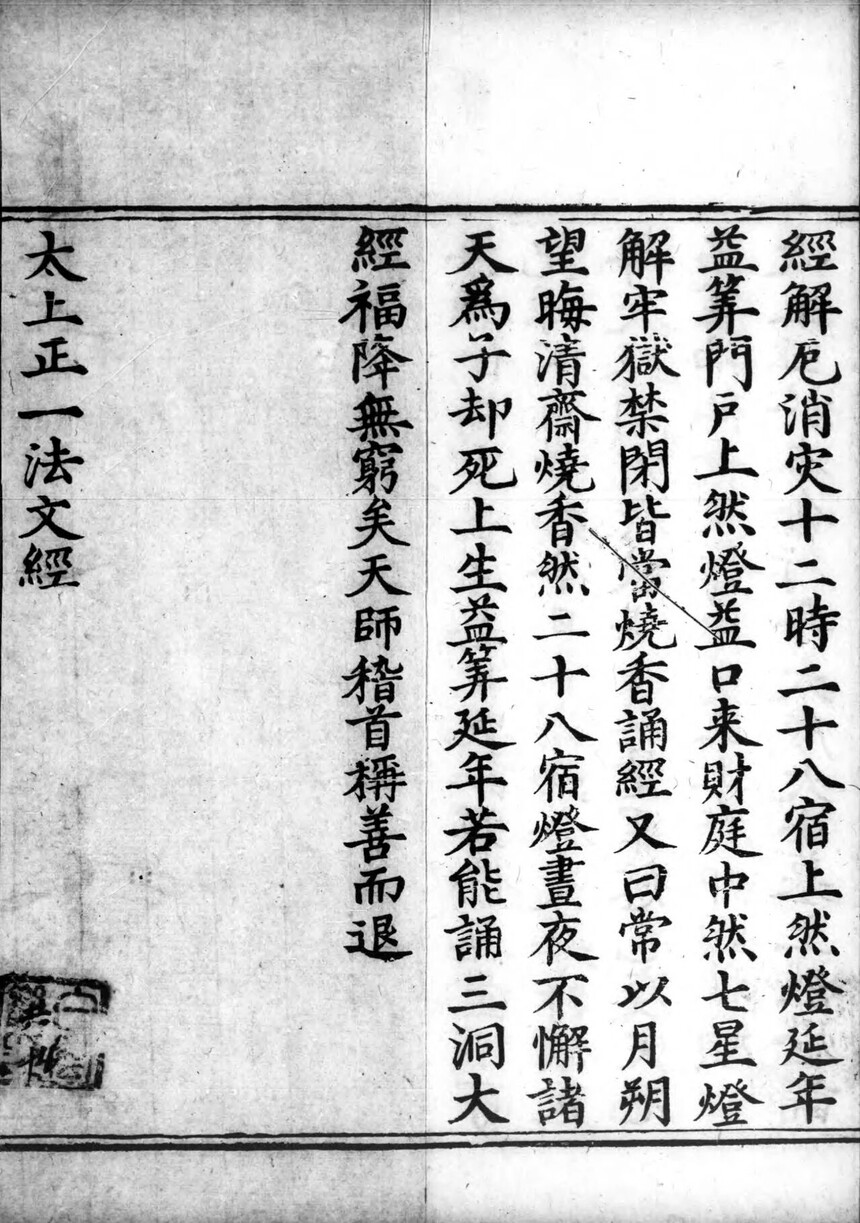 經解厄消灾十二時二十八宿上然燈延年
益筭門戶上然燈益口来財庭中然七星燈
解牢獄禁閉皆當燒香誦經又曰常以月朔
望晦清齋燒香然二十八宿燈晝夜不懈諸
天爲子却死上生益筭延年若能誦三洞大
經福降無窮矣天師稽首稱善而退
太上正一法文經